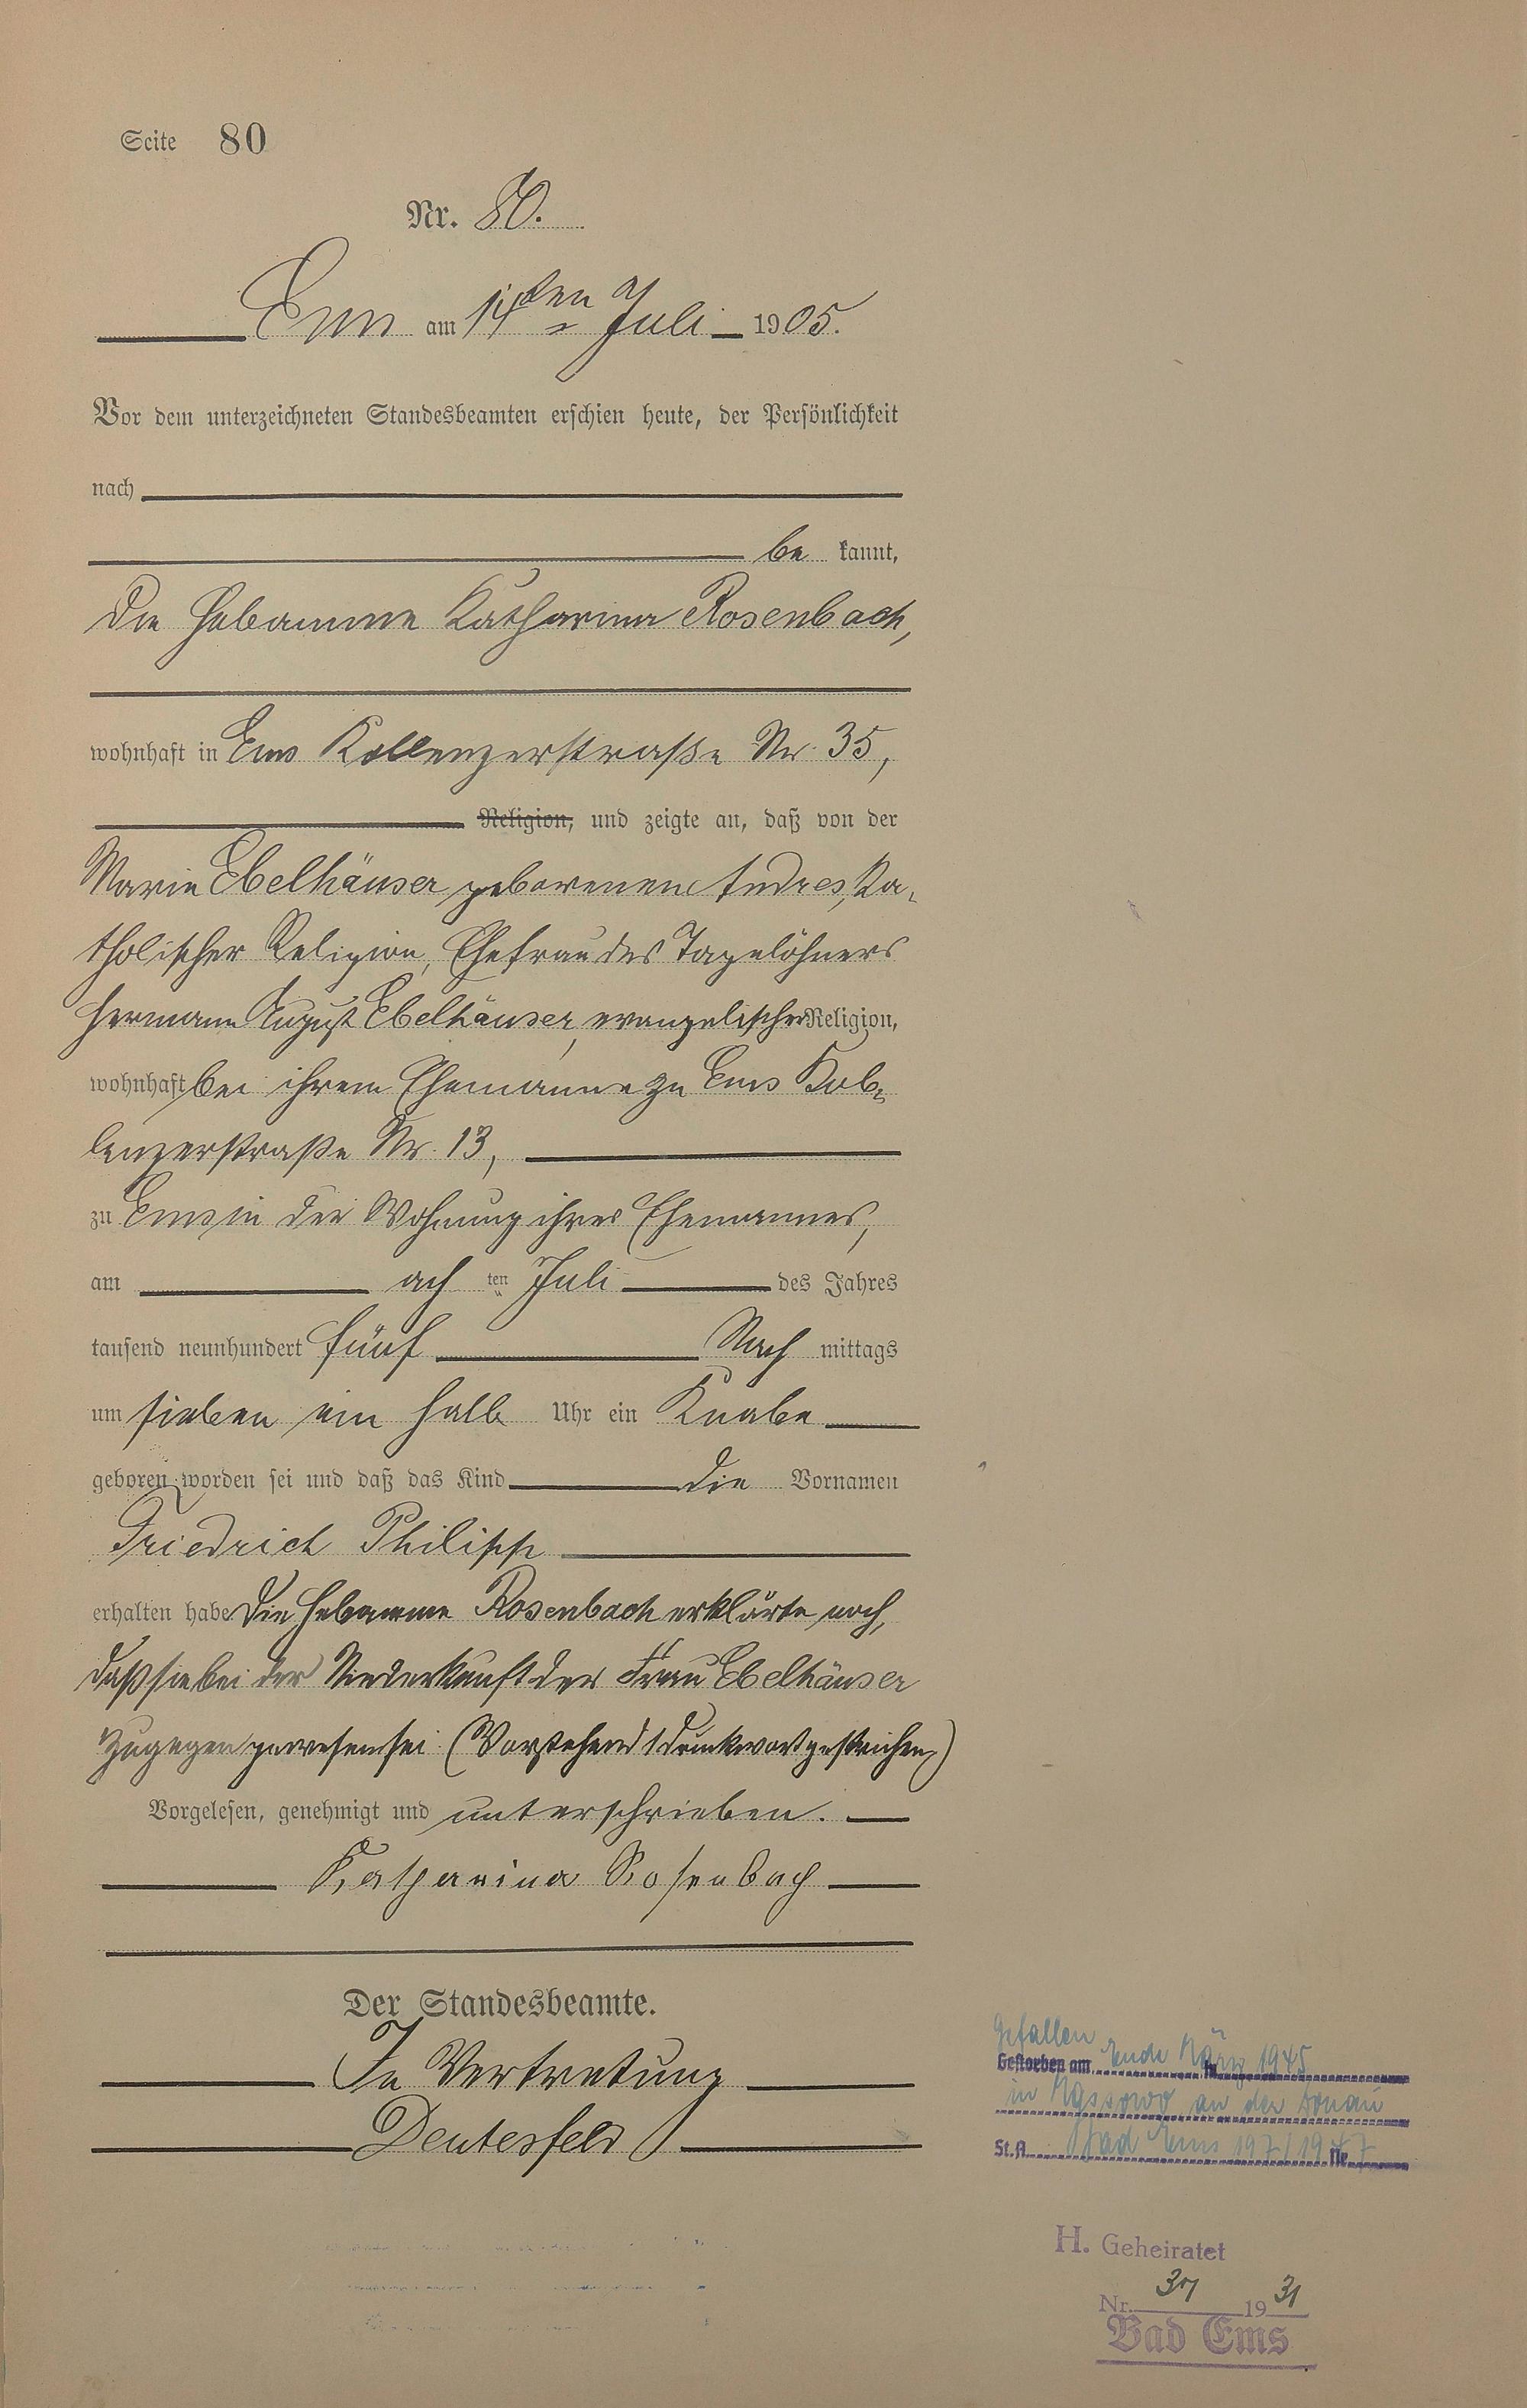 Seite 80
Nr. 80.
Ems am 14ten Juli 1905.
Vor dem unterzeichneten Standesbeamten erschien heute, der Persönlichkeit
nach
be kannt,
die Hebamme Katharina Rosenbach,
wohnhaft in Ems Koblenzerstraße Nr. 35,
Religion, und zeigte an, daß von der
Marie Ebelhäuser geborenen Andres, ka-
tholischer Religion, Ehefrau des Tagelöhners
Hermann August Ebelhäuser, evangelischer Religion,
wohnhaft bei ihrem Ehemanne zu Ems Kob-
lenzerstraße Nr. 13,
zu Ems in der Wohnung ihres Ehemannes,
am ach ten Juli des Jahres
tausend neunhundert fünf Nach mittags
um sieben ein halb Uhr ein Knabe
geboren worden sei und daß das Kind die Vornamen
Friedrich Philipp
erhalten habe Die Hebamme Rosenbach erklärte noch,
daß sie bei der Niederkunft der Frau Ebelhäuser
zugegen gewesen sei. (Vorstehend 1 Druckwort gestrichen.)
Vorgelesen, genehmigt und unterschrieben.
Katharina Rosenbach
Der Standesbeamte.
In Vertretung
Deutesfeld
Gefallen
Gestorben am Ende März 1945
in an der Donau
St.A. Bad Ems 197/1947 Nr.
H. Geheiratet
Nr. 37 1931
Bad Ems